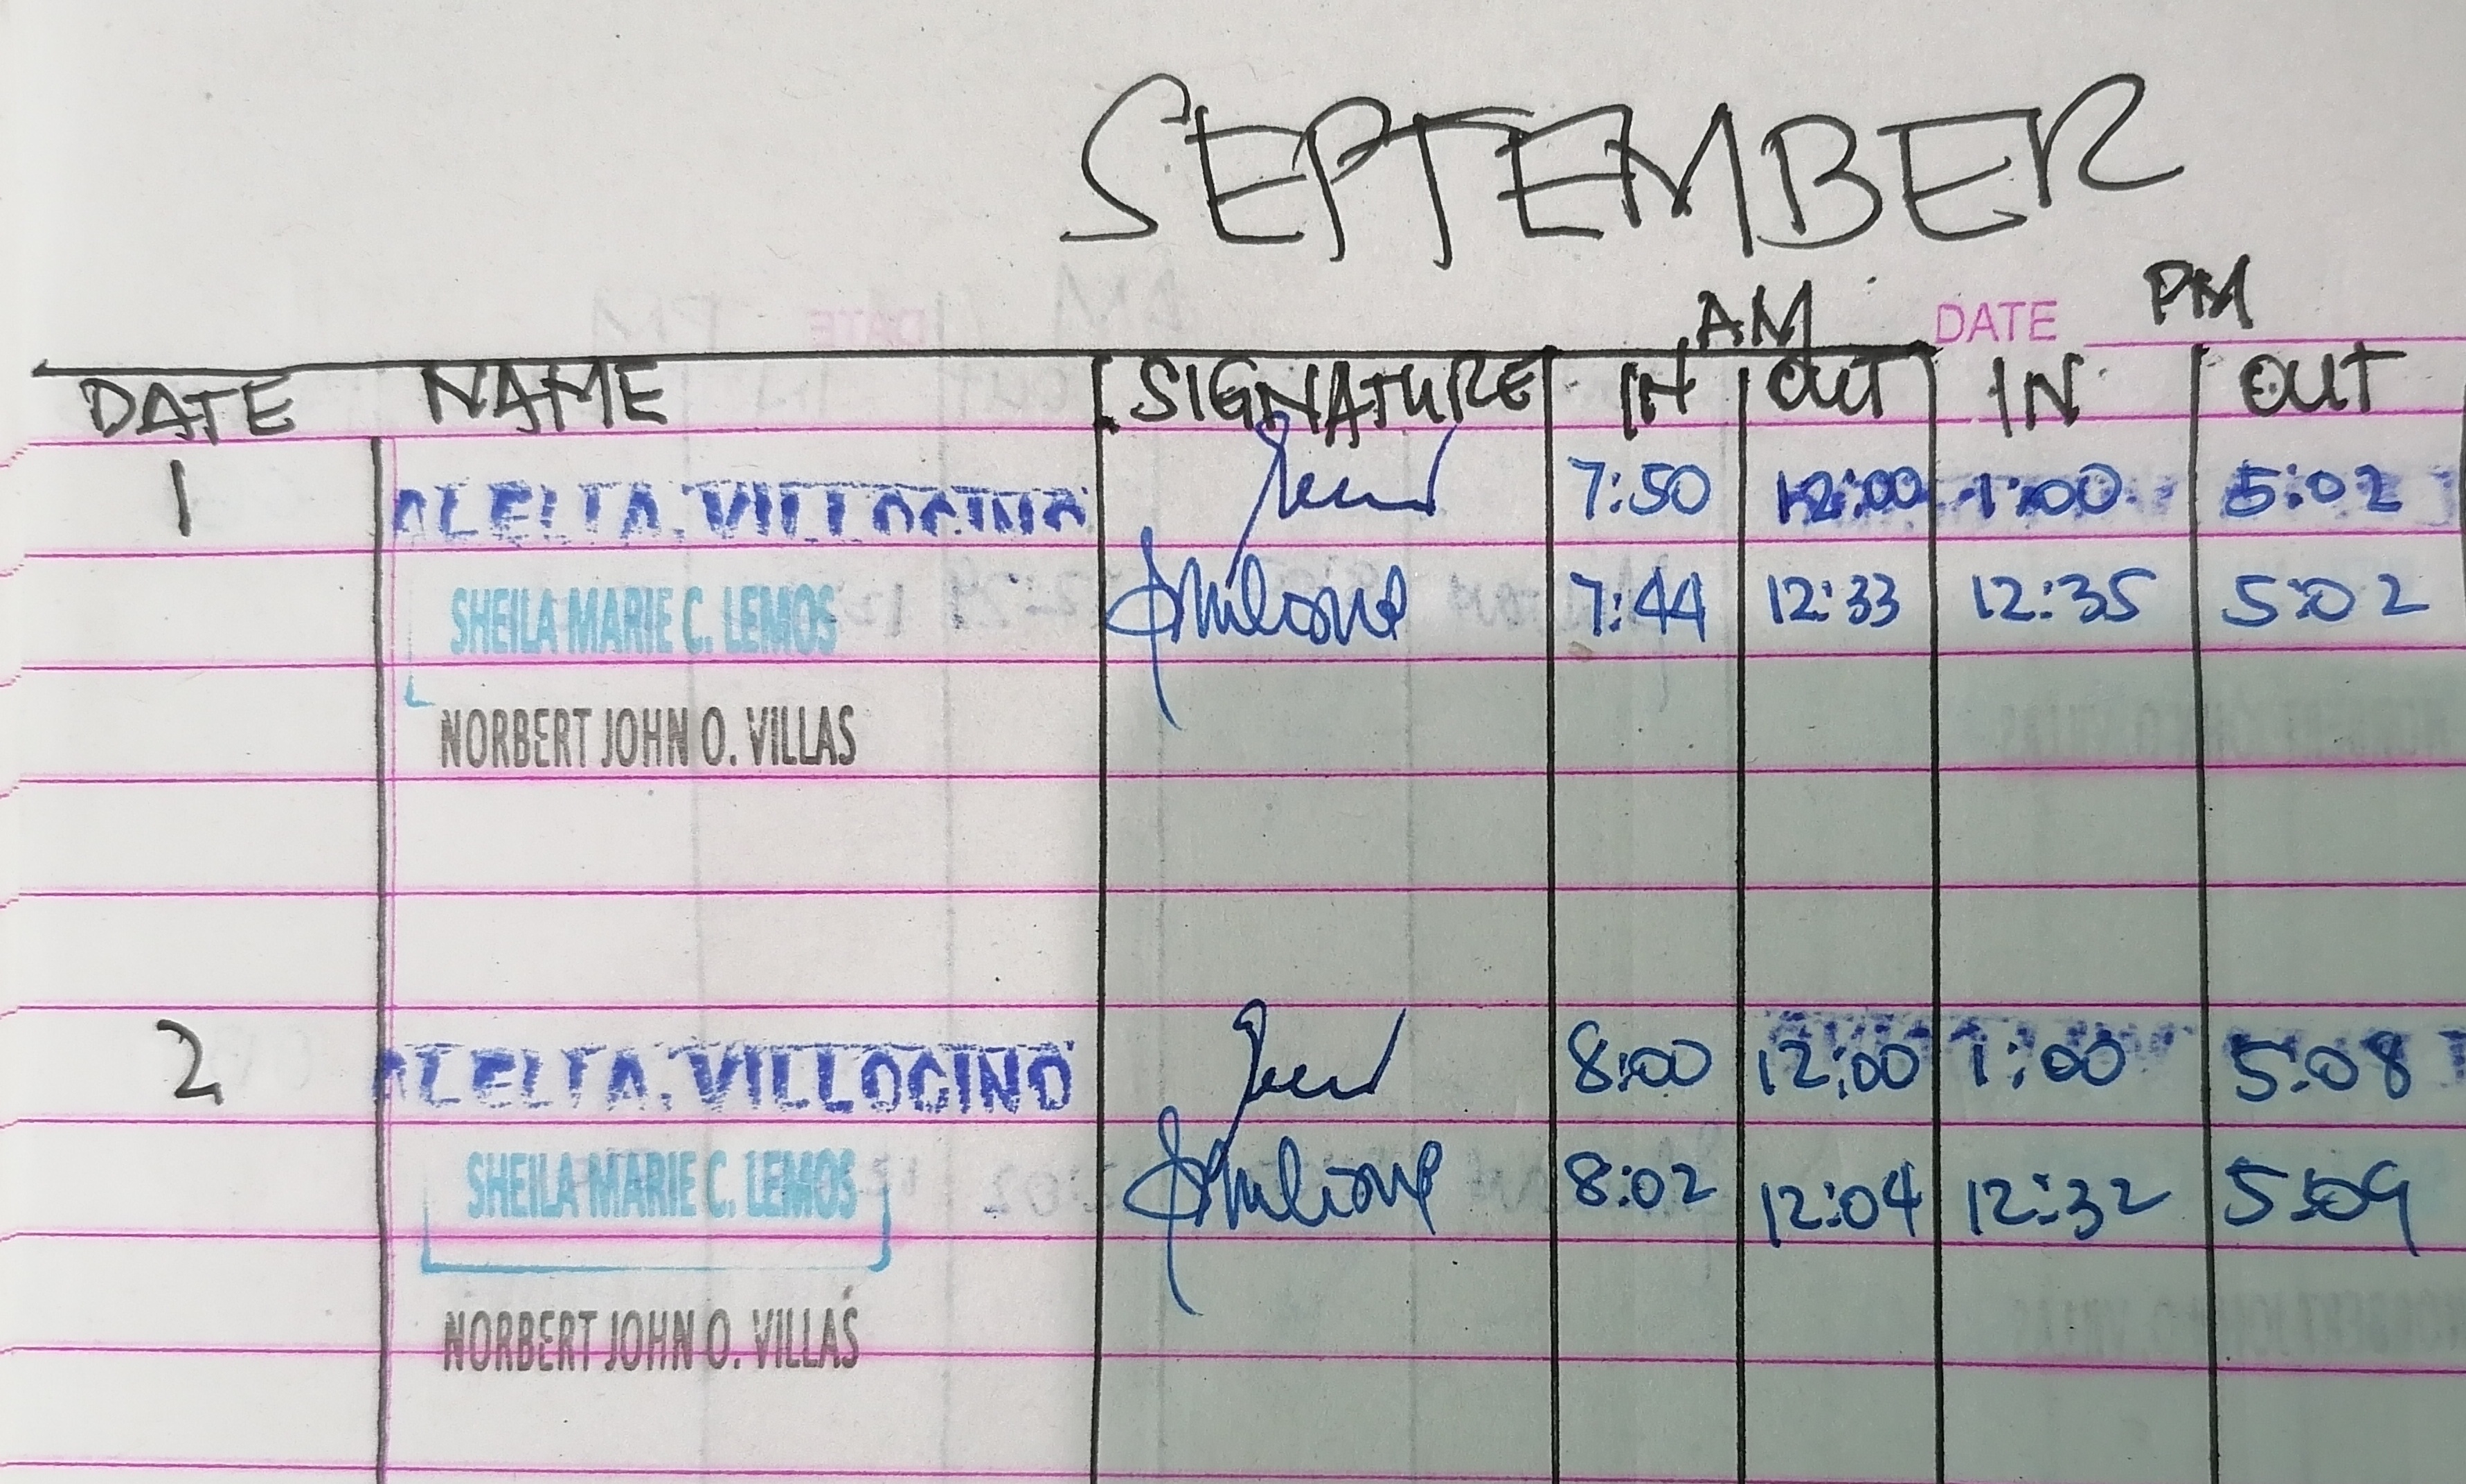 SEPTEMBER
AM DATE PM
DATE NAME SIGNATURE IN OUT IN OUT
1 VILLOCINO 7:50 12:00 1:00 5:02
SHEILA MARIE C. LEMOS 7:44 12:33 12:35 5:02
NORBERT JOHN O. VILLAS
2 VILLOCINO 8:00 12:00 1:00 5:08
SHEILA MARIE C. LEMOS 8:02 12:04 12:32 5:09
NORBERT JOHN O. VILLAS